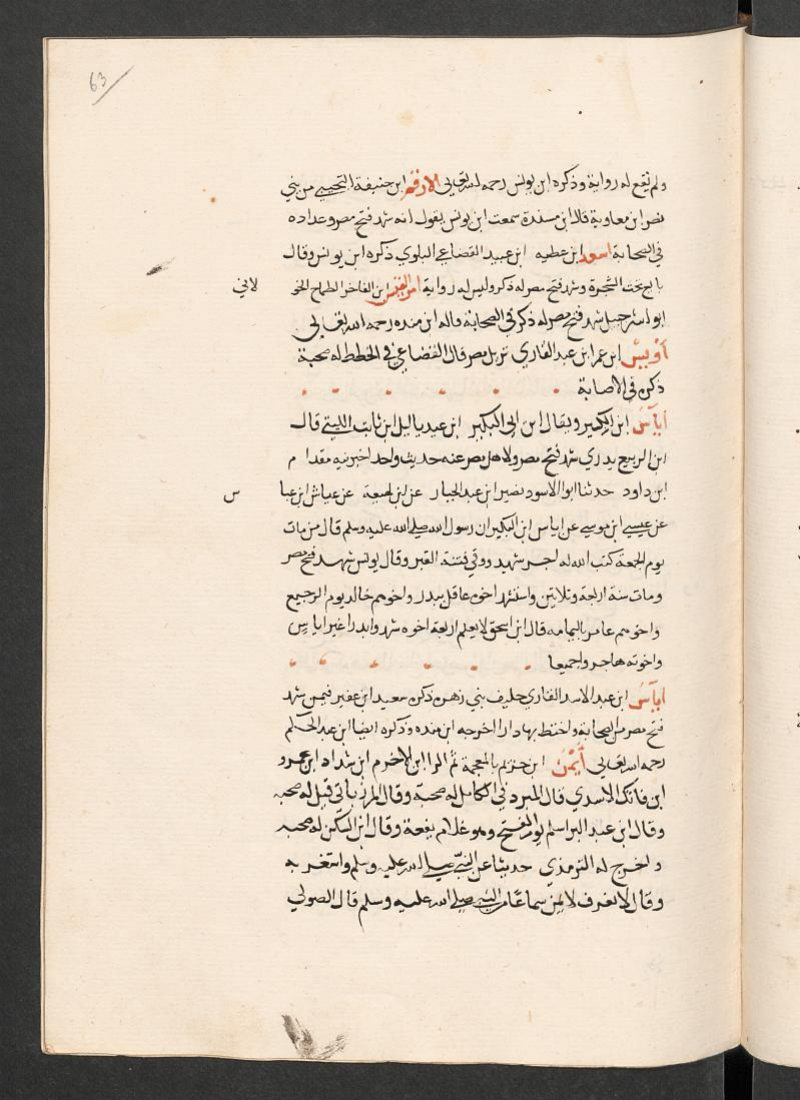 63
ولم تقع له رواية وذكره ابن يونس رحمه الله تعالى الارقم ابن حنيفة التجيبي من بني
نصر ابن معاوية قال ابن مندة سمعت ابن يونس يقول انه شهد فتح مصر وعداده
في الصحابة اسعد ابن عطيه ابن عبيد القضاعي البلوي ذكره ابن يونس وقال
بايع تحت الشجرة وشهد فتح مصر له ذكر وليس له رواية امرالقيس ابن الفاخر ابن الطماح الخو لاني
ابو شرحبيل شهد فتح مصر له ذكر في الصحابة قاله ابن منده رحمه الله تعالى
أوَيسْ ابن عمر ابن عبد القاري نزيل مصر قال القضاعي في الخطط له صحبة
ذكره في الاصابة
اياسَ ابن البكير ويقال ابن ابي البكير ابن عبد ياليل ابن ناشب الليثي قال
ابن الربيع بدري شهد فتح مصر ولاهل مصر عنه حديث واحد اخبرنيه مقدا م
ابن داود حدثنا ابو الاسود نضير ابن عبد الجبار عن ابن لهيعة عن عياش ابن عبا س
عن عيسى ابن موسى عن اياس ابن البكير ان رسول الله صلى الله عليه وسلم قال من مات
يوم الجمعة كتب الله له اجر شهيد ووقي فتنة القبر وقال يونس شهد فتح مصر
ومات سنة اربعة وثلاثين واستشهد اخوه عاقل ببدر واخوهم خالد يوم الرجيع
واخوهم عامر باليمامه قال ابن اسحق لا يعلم اربعة اخوه شهدوا بدرا غير اياس
واخوته هاجروا جميعا
اياسَ ابن عبد الاسد القاري حليف بني زهره ذكره سعيد ابن عفير فيمن شهد
فتح مصر من الصحابة واختط بها دارا اخرجه ابن منده وذكره ايضا ابن عبد الحكم
رحمه الله تعالى أَيْمَنْ ابن خزيم بالمعجمة ثم الرا ابن الاخرم ابن شداد ابن عمرو
ابن فاتك الاسدي قال المبرد في الكامل له صحبة وقال المرزباني قيل له صحبه
وقال ابن عبد البر اسلم يوم الفتح وهو غلام يفعة وقال ابن السكن له صحبه
واخرج له الترمذي حديثا عن النبي صلى الله عليه وسلم واستغربه
وقال لا نعرف لايمن سماعا من النبي صلى الله عليه وسلم قال الصولي